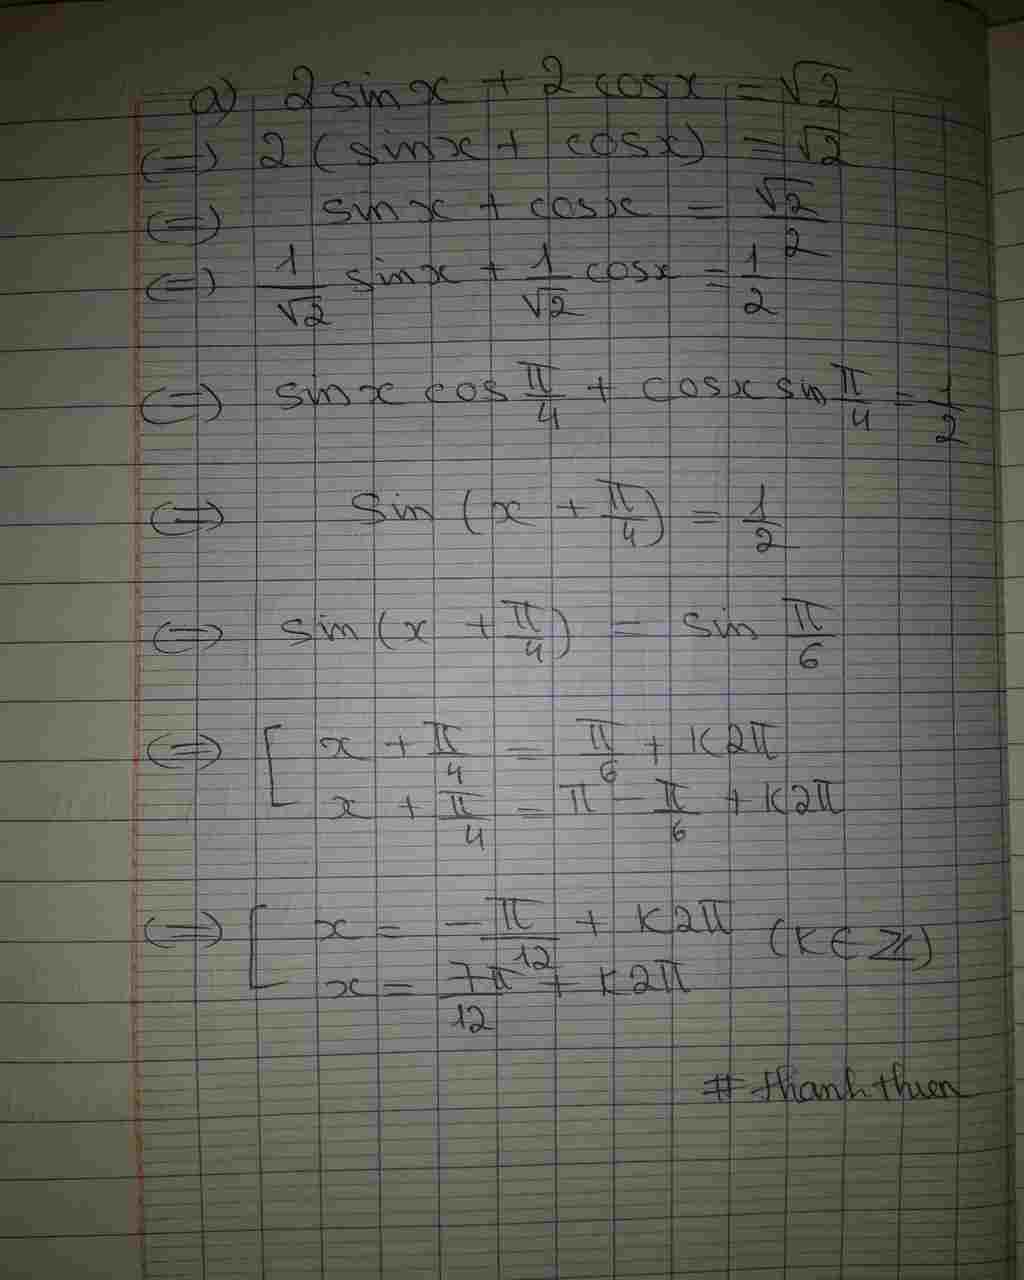 a) 2 sinx + 2 cosx = √2
⇔ 2 (sinx + cosx) = √2
⇔ sinx + cosx = √2/2
⇔ 1/√2 sinx + 1/√2 cosx = 1/2
⇔ sinx cos π/4 + cosx sin π/4 = 1/2
⇔ sin (x + π/4) = 1/2
⇔ sin (x + π/4) = sin π/6
⇔ [ x + π/4 = π/6 + K2π
x + π/4 = π - π/6 + K2π
⇔ [ x = -π/12 + K2π (K ∈ Z)
x = 7π/12 + K2π
# thanhthuen